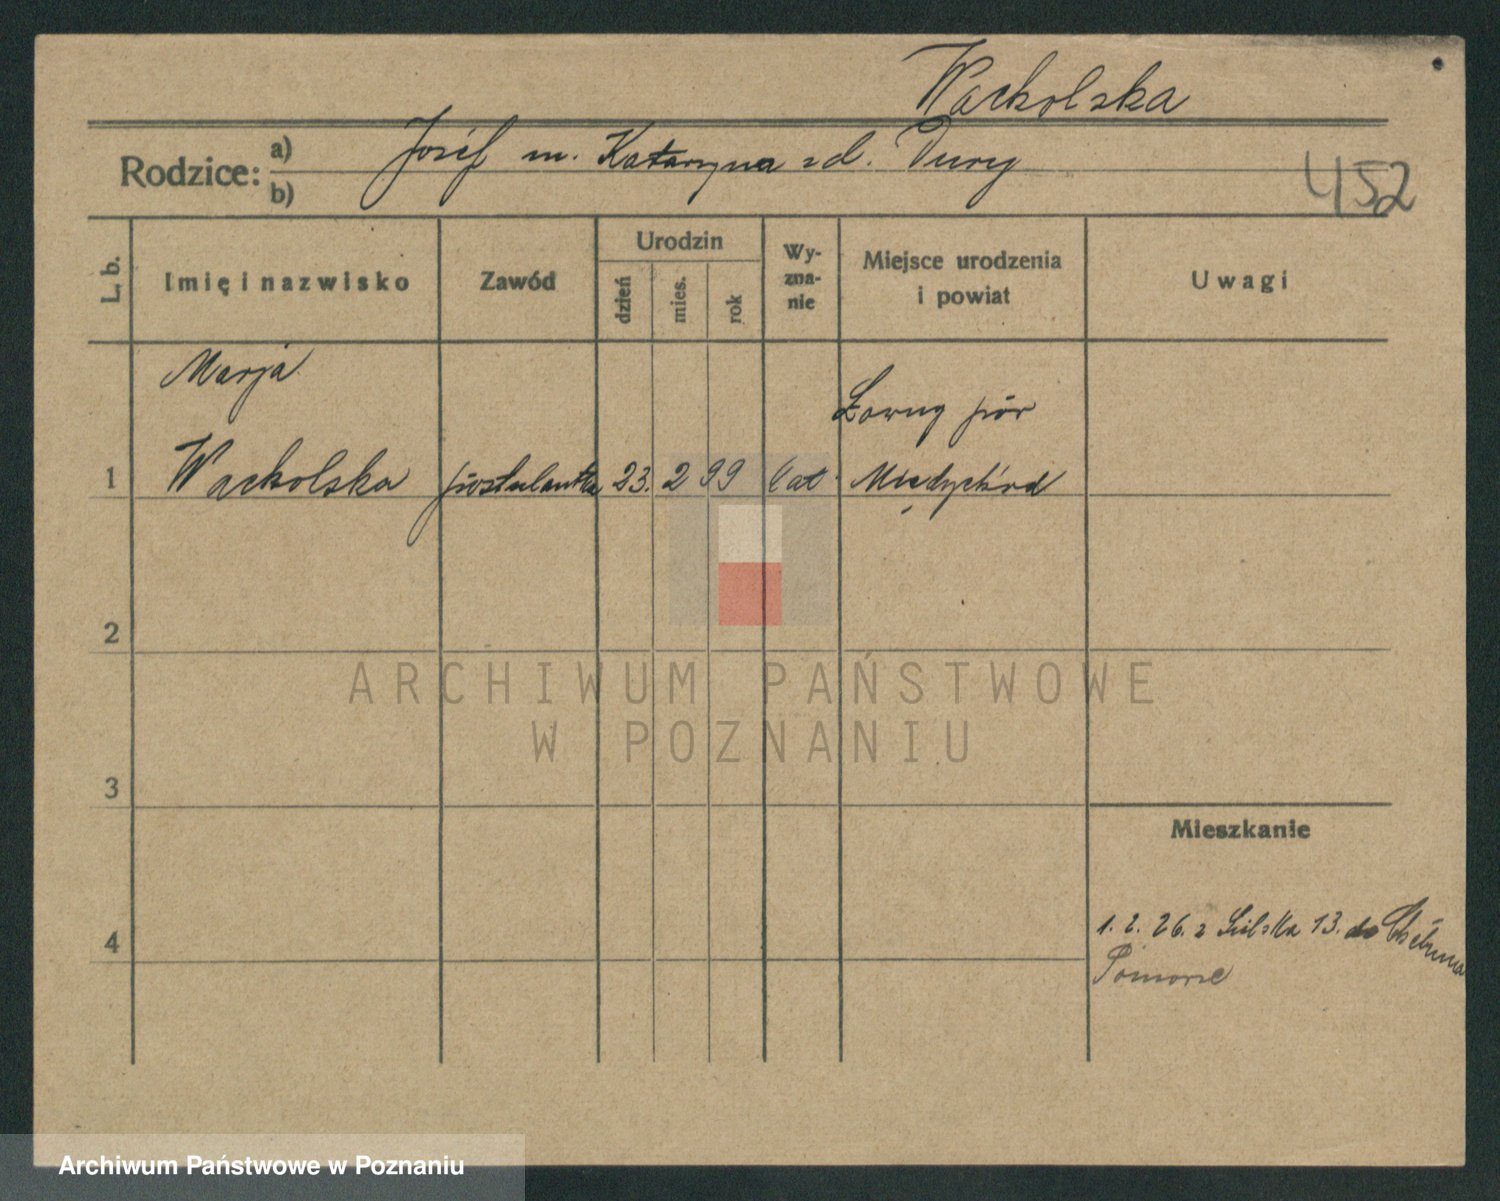 Wackolska
Rodzice: a) b) Józef m. Katarzyna zd. Dury
452
L. b. Imię i nazwisko Zawód Urodzin dzień mies. rok Wy-zna-nie Miejsce urodzenia i powiat Uwagi
Marja
1 Wackolska postulantka 23. 2 99 kat.
2
ARCHIWUM PAŃSTWOWE
W POZNANIU
3
Mieszkanie
4 1. 2. 26. z 13. do
Pomorze
Archiwum Państwowe w Poznaniu